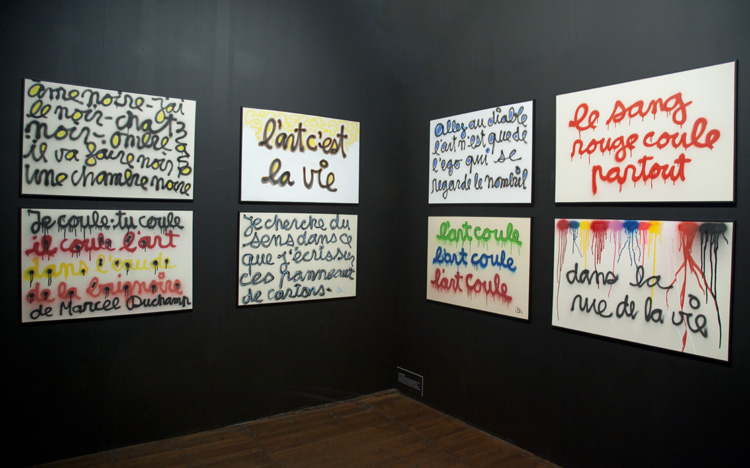 âme noire-j'ai
le noir-chat
noir-ombre
il va faire noir
une chambre noire
Je coule.tu coule
il coule l'art
dans l'eau de
de la baignoire
de Marcel Duchamp
l'art c'est
la vie
je cherche du
sens dans ce
que j'écris sur
ces panneaux
de cartons.
Allez au diable
l'art n'est que de
l'ego qui se
regarde le nombril
l'art coule
l'art coule
l'art coule
le sang
rouge coule
partout
dans la
rue de la vie